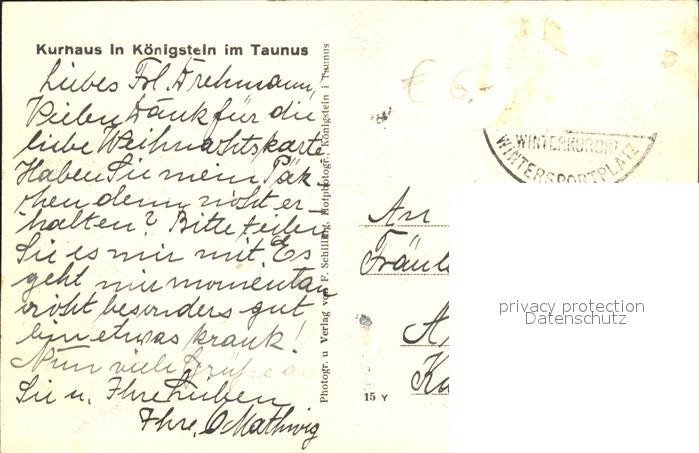 Kurhaus in Königstein im Taunus
Liebes Frl. Drehmann,
Vielen Dank für die
liebe Weihnachtskarte
Haben Sie mein Päk
chen denn nicht er-
halten? Bitte teilen
Sie es mir mit. Es
geht mir momentan
nicht besonders gut
bin etwas krank!
Nun viele Grüße an
Sie u. Ihre Lieben
Ihre, O Mathwig
Photogr. u Verlag von F. Schilling, Hofphotogr., Königstein i Taunus
€ 6.-
WINTERKURORT
WINTERSPORTPLATZ
An
Fräul
15 Y
privacy protection
Datenschutz